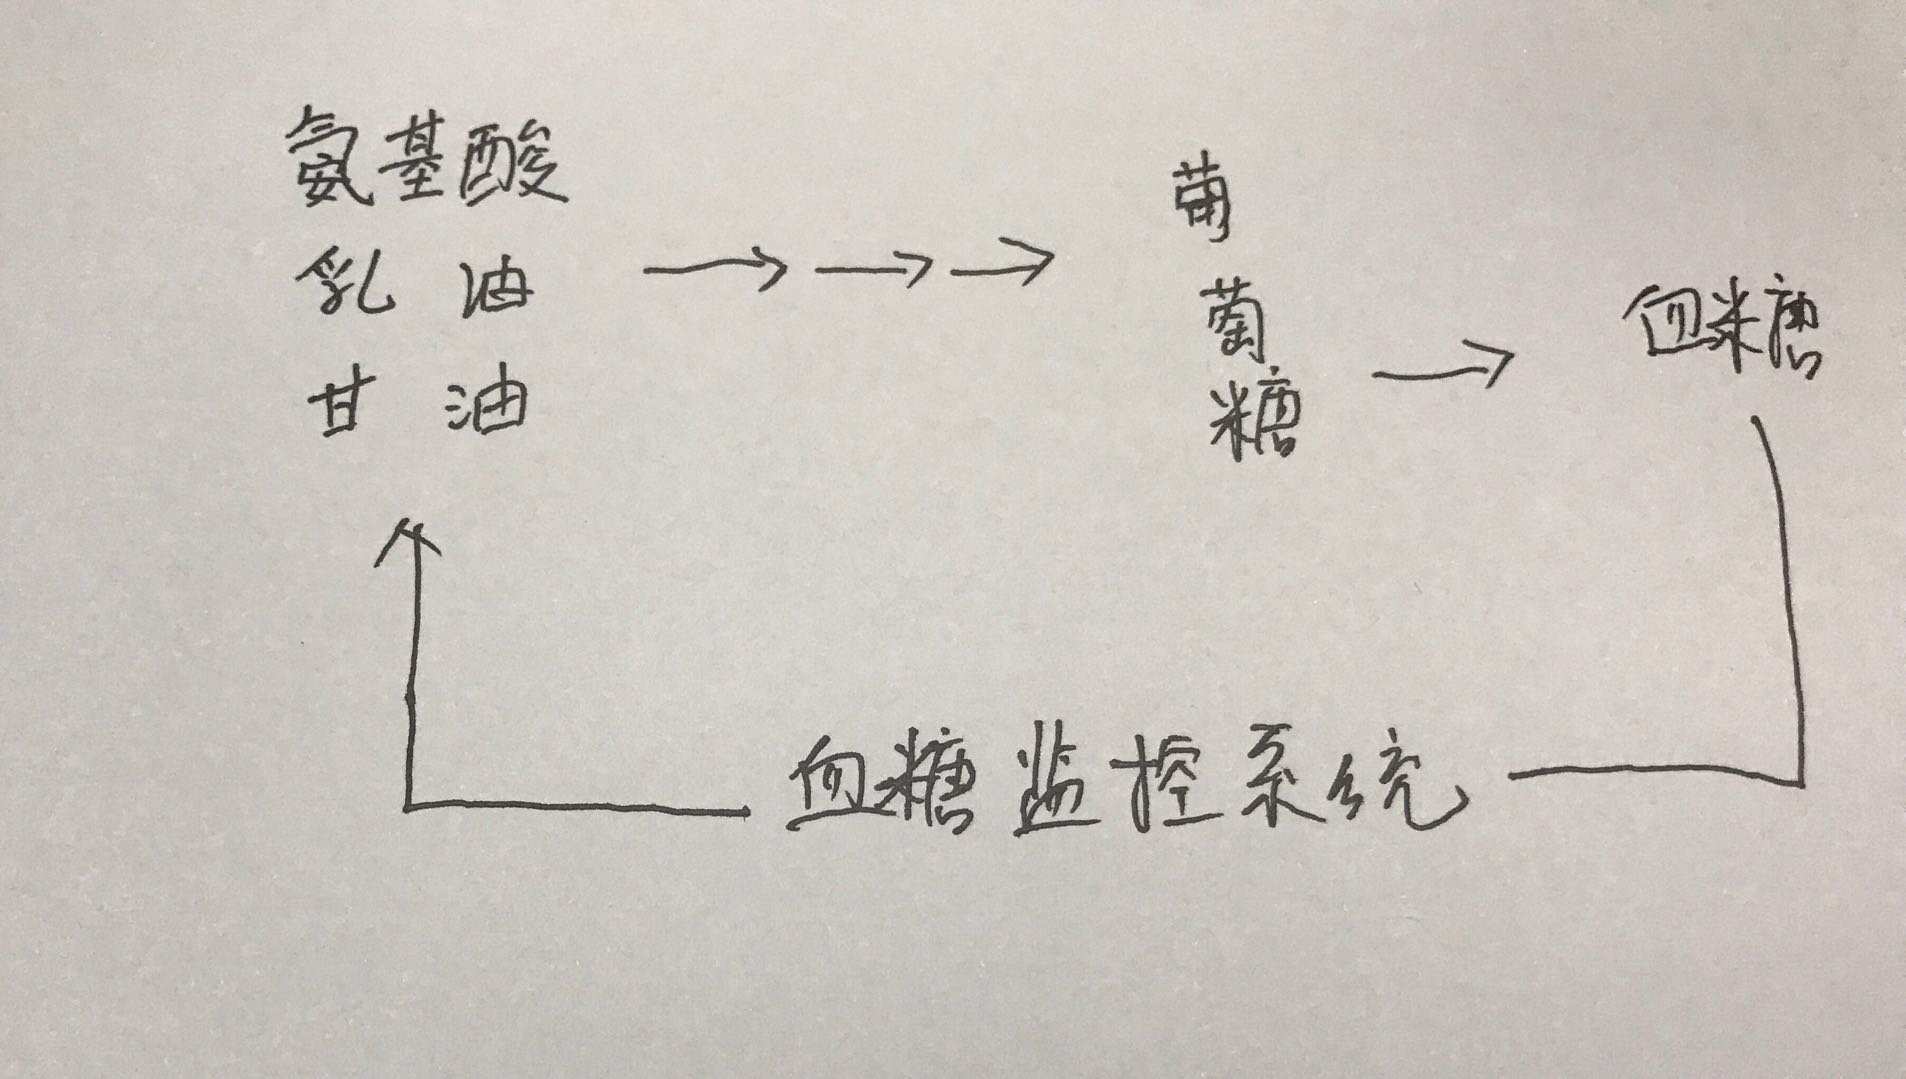 氨基酸
乳 油
甘 油
葡
萄
糖
血糖
血糖监控系统